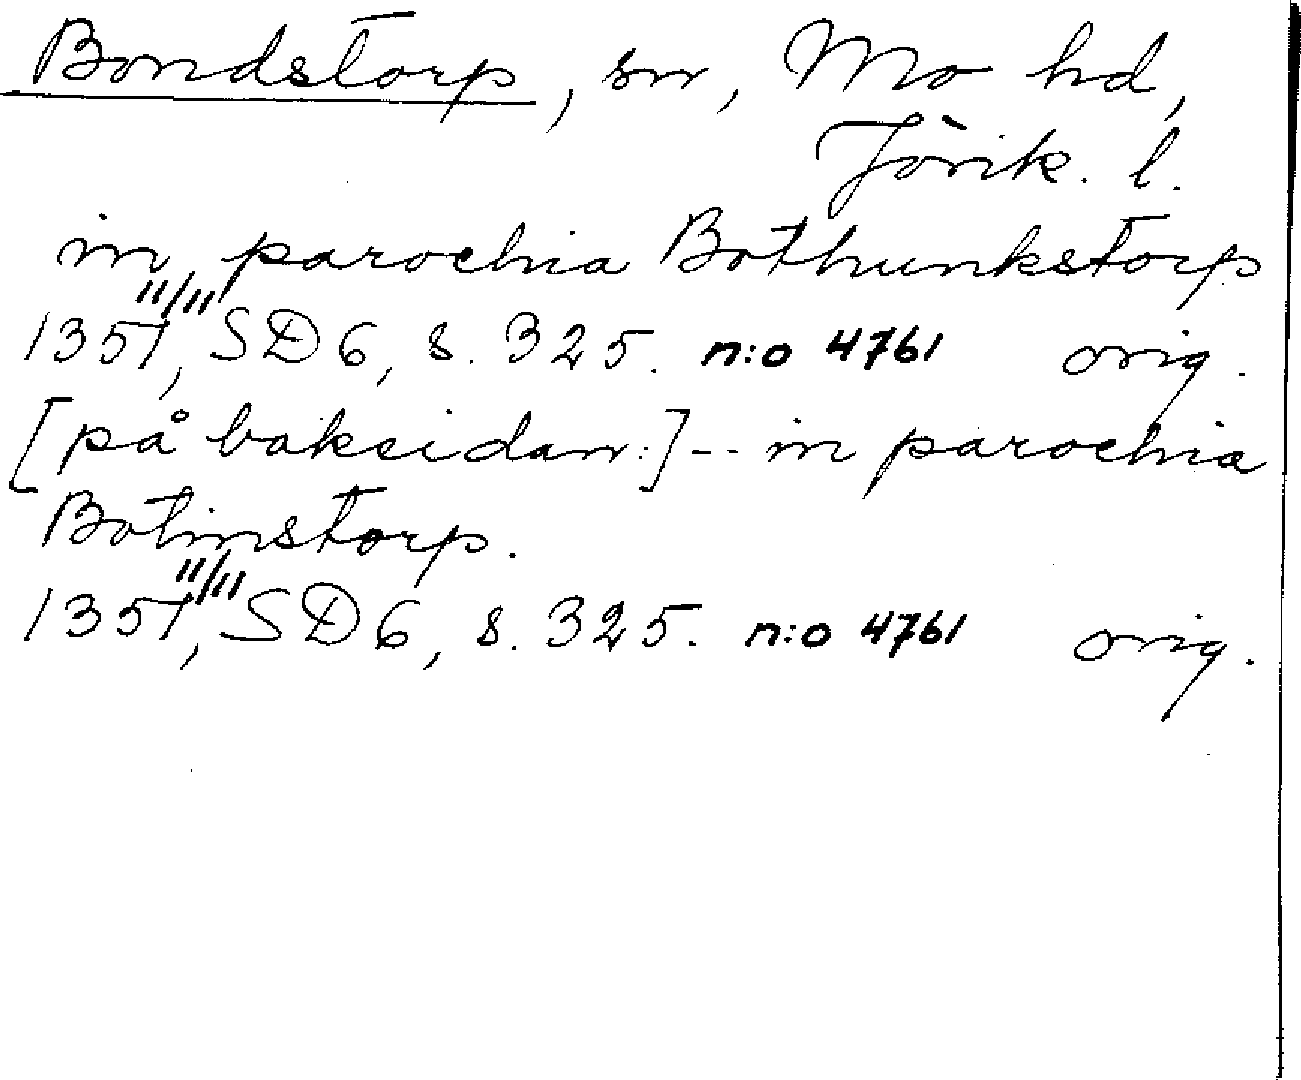 Bondstorp, sn, Mo hd,
Jönk. l.
in parochia Bothunkstorp
1351 11/11, SD 6, s. 325. n:o 4761 orig.
[på baksidan:] -- in parochia
Botinstorp.
1351 11/11, SD 6, s. 325. n:o 4761 orig.